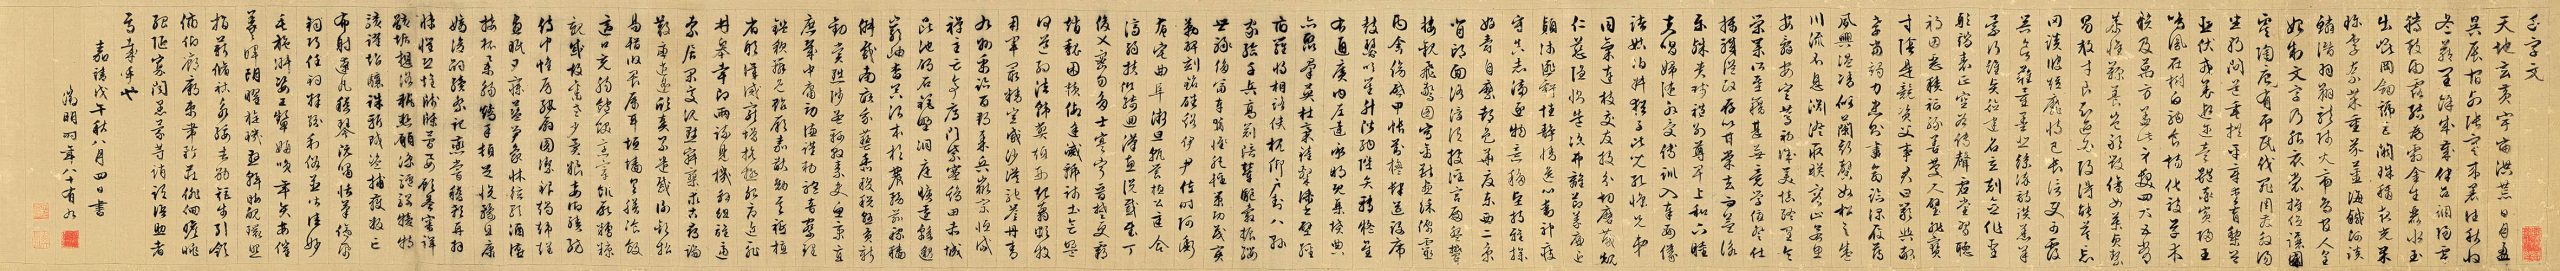 千字文
天地玄黄宇宙洪荒日月盈
昃辰宿列張寒来暑往秋收
冬藏閏餘成歲律召調陽雲
騰致雨露結為霜金生麗水玉
出崑岡劍號巨闕珠稱夜光果
珍李柰菜重芥薑海鹹河淡
鱗潛羽翔龍師火帝鳥官人皇
始制文字乃服衣裳推位讓國
有虞陶唐弔民伐罪周發殷湯
坐朝問道垂拱平章愛育黎首
臣伏戎羌遐邇壹體率賓歸王
鳴鳳在樹白駒食場化被草木
賴及萬方蓋此身髮四大五常
恭惟鞠養豈敢毀傷女慕貞絜
男效才良知過必改得能莫忘
罔談彼短靡恃己長信使可覆
器欲難量墨悲絲染詩讚羔羊
景行維賢德建名立剋念作聖
形端表正空谷傳聲虛堂習聽
禍因惡積福緣善慶尺璧非寶
寸陰是競資父事君曰嚴與敬
孝當竭力忠則盡命臨深履薄
夙興溫凊似蘭斯馨如松之盛
川流不息淵澄取映容止若思
言辭安定篤初誠美慎終宜令
榮業所基籍甚無竟學優登仕
攝職從政存以甘棠去而益詠
樂殊貴賤禮別尊卑上和下睦
夫唱婦隨外受傅訓入奉母儀
諸姑伯叔猶子比兒孔懷兄弟
同氣連枝交友投分切磨箴規
仁慈隱惻造次弗離節義廉退
顛沛匪虧性靜情逸心動神疲
守真志滿逐物意移堅持雅操
好爵自縻都邑華夏東西二京
背邙面洛浮渭據涇宮殿盤鬱
樓觀飛驚圖寫禽獸畫彩仙靈
丙舍傍啓甲帳對楹肆筵設席
鼓瑟吹笙升階納陛弁轉疑星
右通廣內左達承明既集墳典
亦聚羣英杜稾鍾隸漆書壁經
府羅將相路俠槐卿戶封八縣
家給千兵高冠陪輦驅轂振纓
世祿侈富車駕肥輕策功茂實
勒碑刻銘磻溪伊尹佐時阿衡
奄宅曲阜微旦孰營桓公匡合
濟弱扶傾綺迴漢惠說感武丁
俊乂密勿多士寔寧晉楚更霸
趙魏困橫假途滅虢踐土會盟
何遵約法韓弊煩刑起翦頗牧
用軍最精宣威沙漠馳譽丹青
九州禹跡百郡秦并嶽宗恆岱
禪主云亭雁門紫塞雞田赤城
昆池碣石鉅野洞庭曠遠綿邈
巖岫杳冥治本於農務茲稼穡
俶載南畝我藝黍稷稅熟貢新
勸賞黜陟孟軻敦素史魚秉直
庶幾中庸勞謙謹敕聆音察理
鑑貌辨色貽厥嘉猷勉其祗植
省躬譏誡寵增抗極殆辱近恥
林皋幸即兩疏見機解組誰逼
索居閒處沉默寂寥求古尋論
散慮逍遙欣奏累遣慼謝歡招
易輶攸畏屬耳垣牆具膳飡飯
適口充腸飽飫烹宰飢厭糟糠
親戚故舊老少異糧妾御績紡
侍巾帷房紈扇圓潔銀燭煒煌
晝眠夕寐藍筍象床絃歌酒讌
接杯舉觴矯手頓足悅豫且康
嫡後嗣續祭祀蒸嘗稽顙再拜
悚懼恐惶牋牒簡要顧答審詳
骸垢想浴執熱願涼驢騾犢特
駭躍超驤誅斬賊盜捕獲叛亡
布射遼丸嵇琴阮嘯恬筆倫紙
鈞巧任釣釋紛利俗並皆佳妙
毛施淑姿工顰妍笑年矢每催
羲暉朗耀璇璣懸斡晦魄環照
指薪修祜永綏吉劭矩步引領
俯仰廊廟束帶矜莊徘徊瞻眺
孤陋寡聞愚蒙等誚謂語助者
焉哉乎也
嘉靖戊午秋八月四日書
徵明時年八十有九